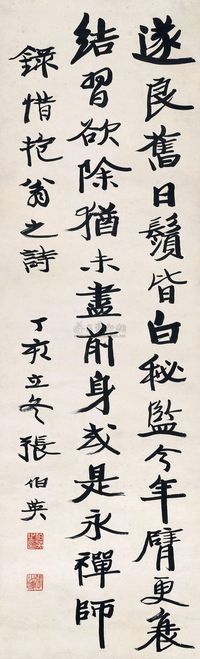 遂良舊日鬚皆白秘監今年臂更衰
結習欲除猶未盡前身或是永禪師
錄惜抱翁之詩
丁亥立冬張伯英